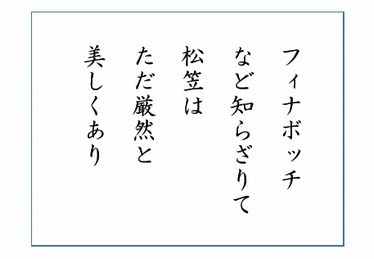 フィナボッチ
など知らざりて
松笠は
ただ厳然と
美しくあり